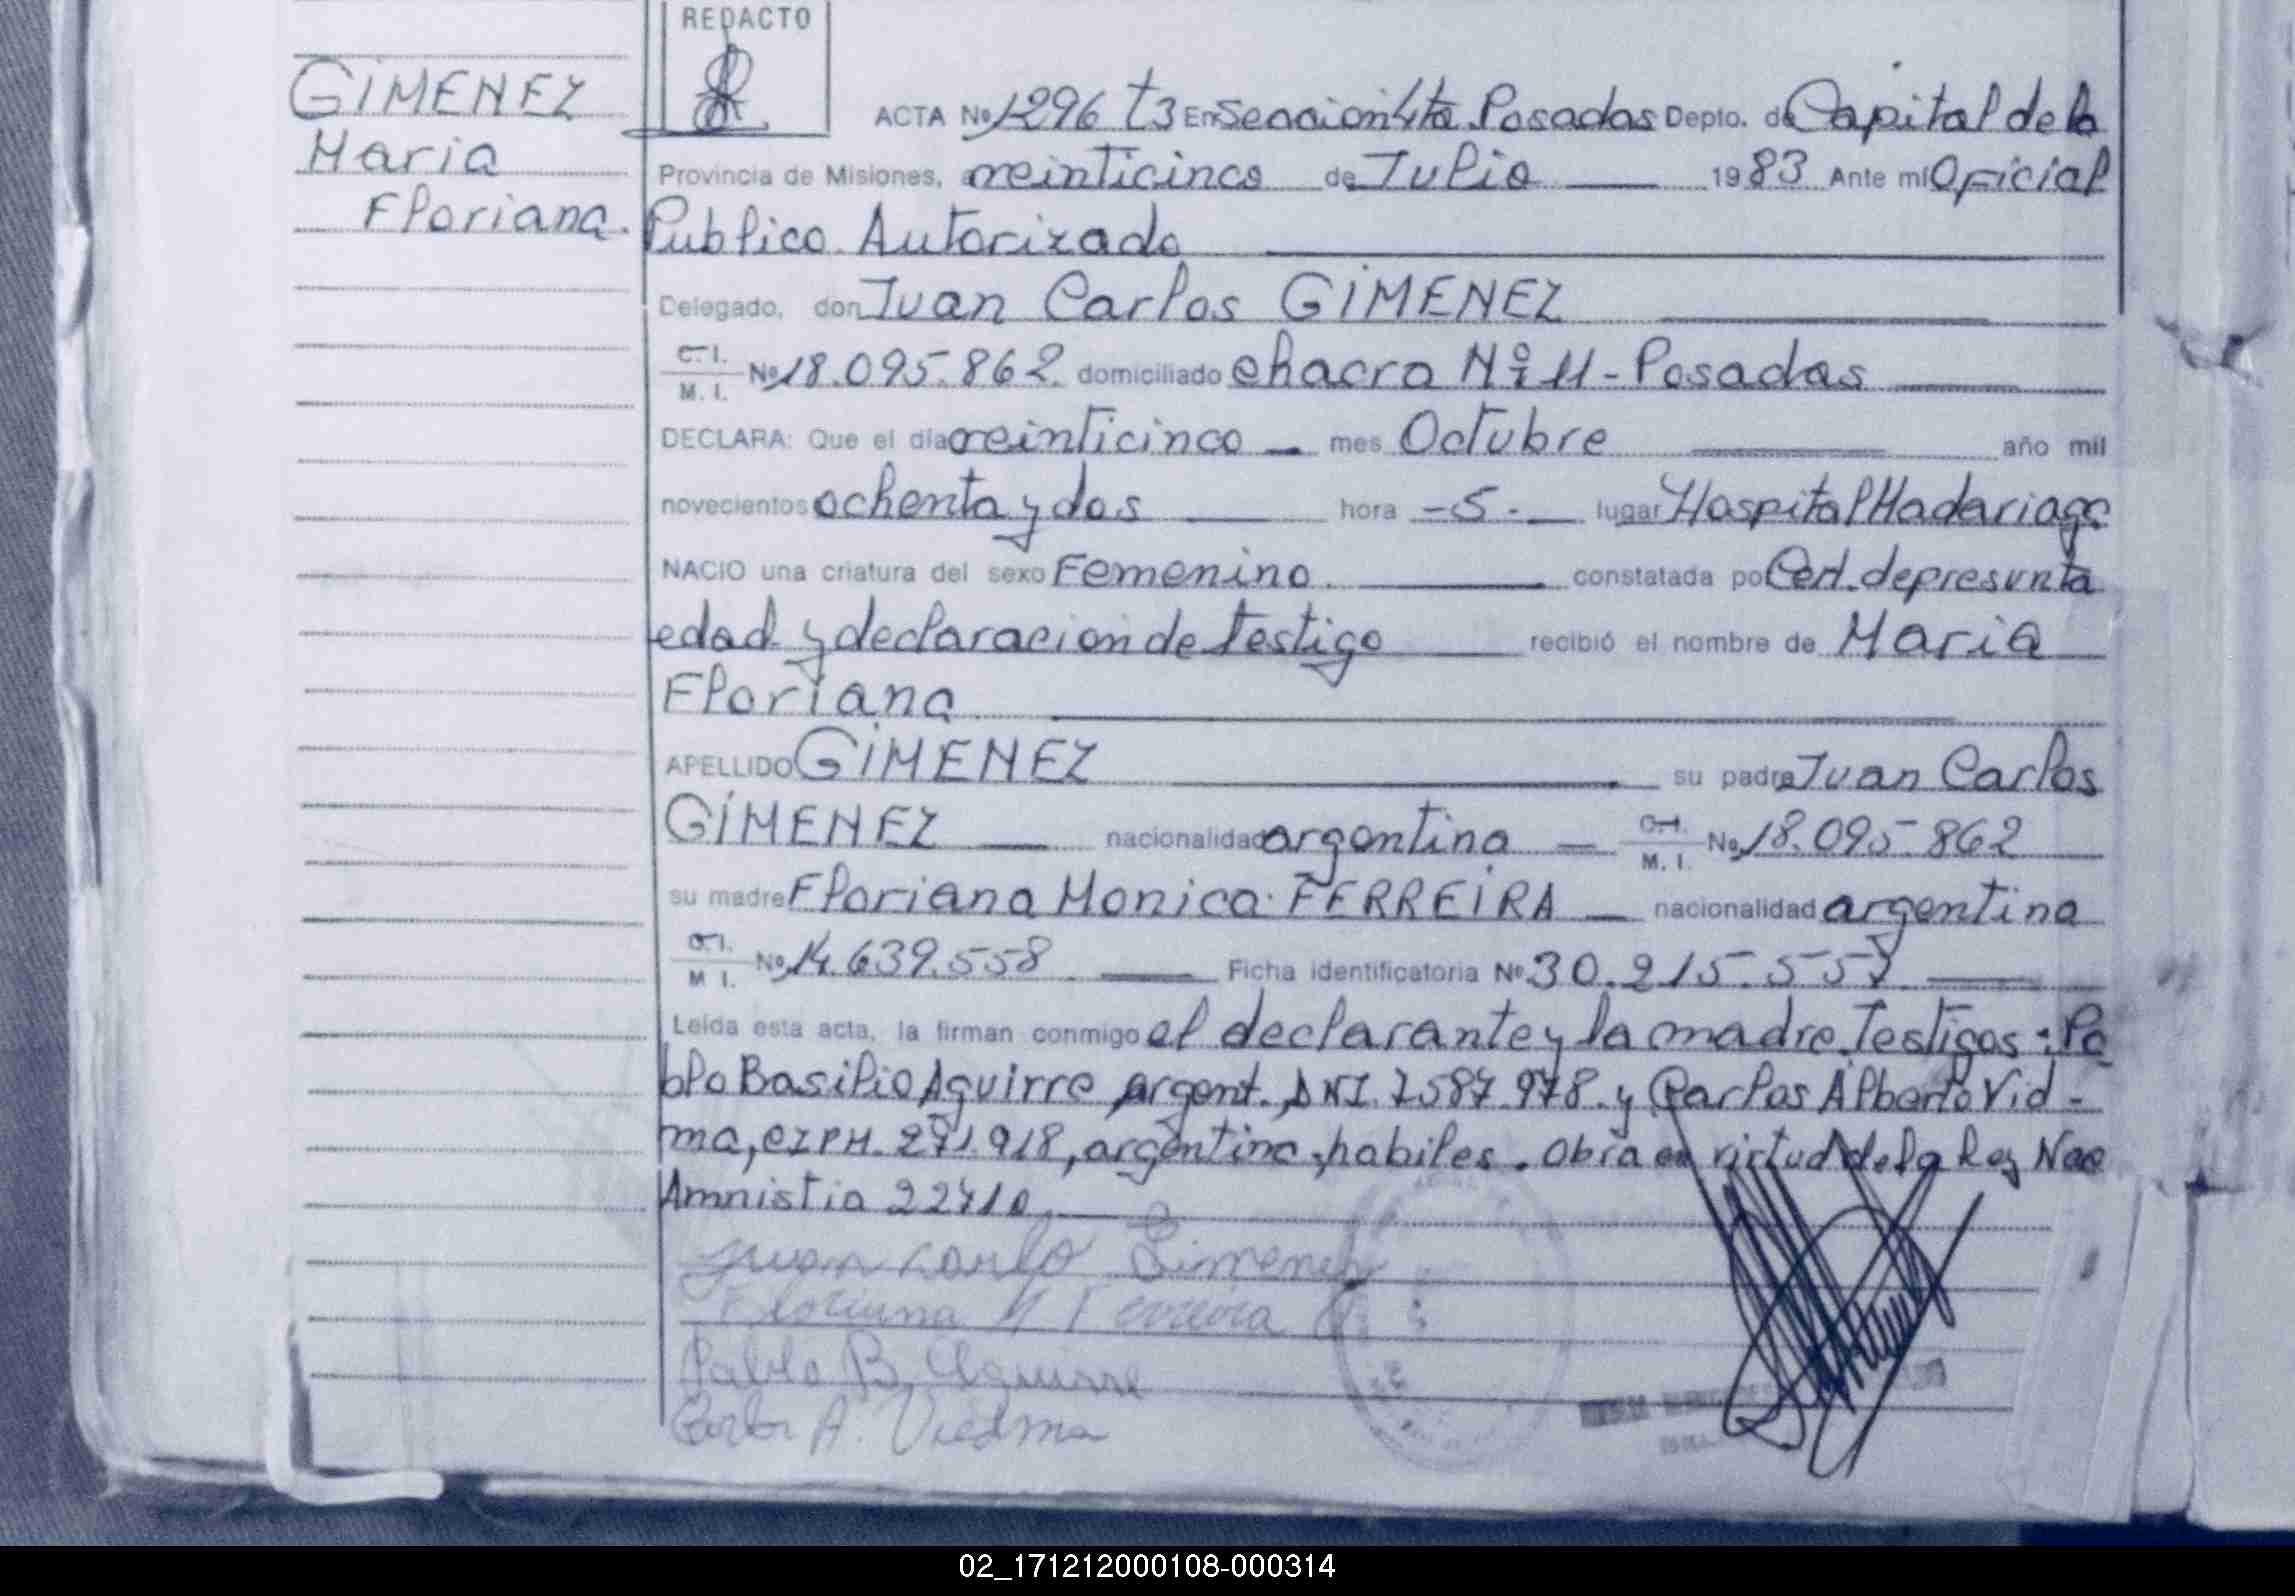 REDACTO
GIMENEZ
Maria
Floriana.
ACTA Nº 1296 t3 En Seccion 4ta Posadas Depto. de Capital de la
Provincia de Misiones, a veinticinco de Julio 1983 Ante mí Oficial
Publico Autorizado
Delegado, don Juan Carlos GIMENEZ
C.I.
M. I. Nº 18.095.862 domiciliado chacra Nº 11 - Posadas
DECLARA: Que el día veinticinco mes Octubre año mil
novecientos ochenta y dos hora -5- lugar Hospital Madariaga
NACIO una criatura del sexo Femenino. constatada por Cert. de presunta
edad y declaracion de testigo recibió el nombre de Maria
Floriana
APELLIDO GIMENEZ su padre Juan Carlos
GIMENEZ nacionalidad argentina C.I.
M. I. Nº 18.095.862
su madre Floriana Monica FERREIRA nacionalidad argentina
C.I.
M I. Nº 14.639.558 Ficha identificatoria Nº 30.215.557
Leída esta acta, la firman conmigo el declarante y la madre. Testigos: Pa
blo Basilio Aguirre argent. DNI. 7587.978. y Carlos Alberto Vid-
ma, CIPM. 271.918, argentino, habiles. Obra en virtud de la Ley Nac
Amnistia 22410
Juan Carlo Gimenez
Floriana M Ferreira
Pablo B. Aguirre
Carlos A. Viedma
02_171212000108-000314